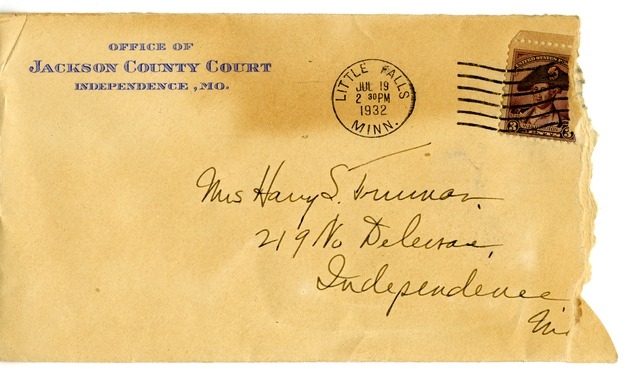 OFFICE OF
JACKSON COUNTY COURT
INDEPENDENCE, MO.
LITTLE FALLS
JUL 19
2 30 PM
1932
MINN.
UNITED STATES
3 CENTS 3
Mrs Harry S. Truman
219 No Delaware,
Independence